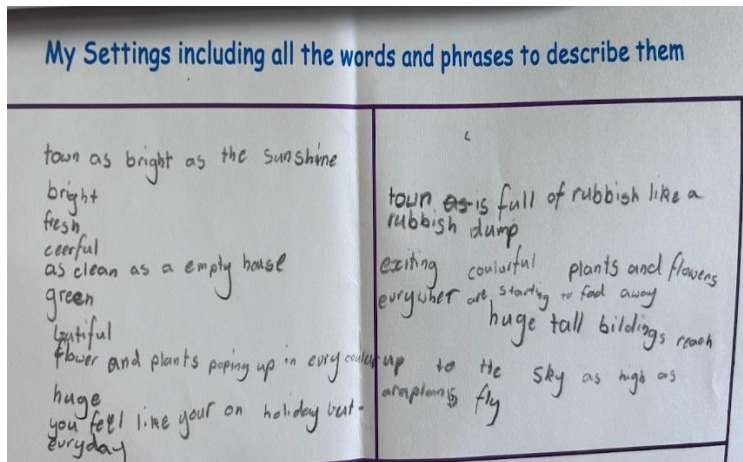 My Settings including all the words and phrases to describe them
town as bright as the sunshine
bright
fresh
ceerful
as clean as a empty house
green
butiful
flower and plants poping up in evry coulur
huge
you feel like your on holiday but
euryday
town is full of rubbish like a
rubbish dump
exiting coulurful plants and flowers
eurywher are starting to fad away
huge tall bildings reach
up to the sky as high as
fly